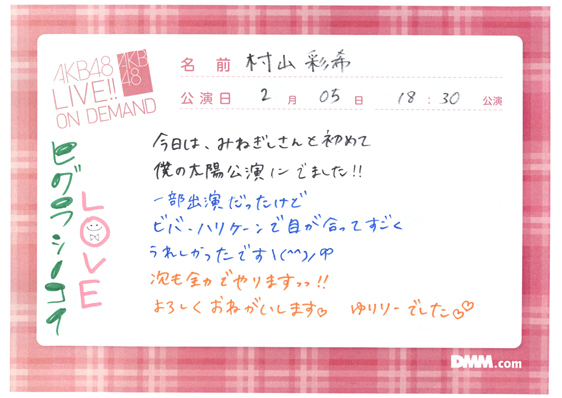 AKB48
LIVE!!
ON DEMAND
AKB
48
名前 村山彩希
公演日 2月05日 18:30公演
今日は、みねぎしさんと初めて
僕の太陽公演にでました!!
一部出演だったけど
ビバ・ハリケーンで目が合ってすごく
うれしかったです\(^^)/
次も全力でやりますっっ!!
よろしくおねがいします♡ ゆいりーでした♡♡
LOVE
DMM.com